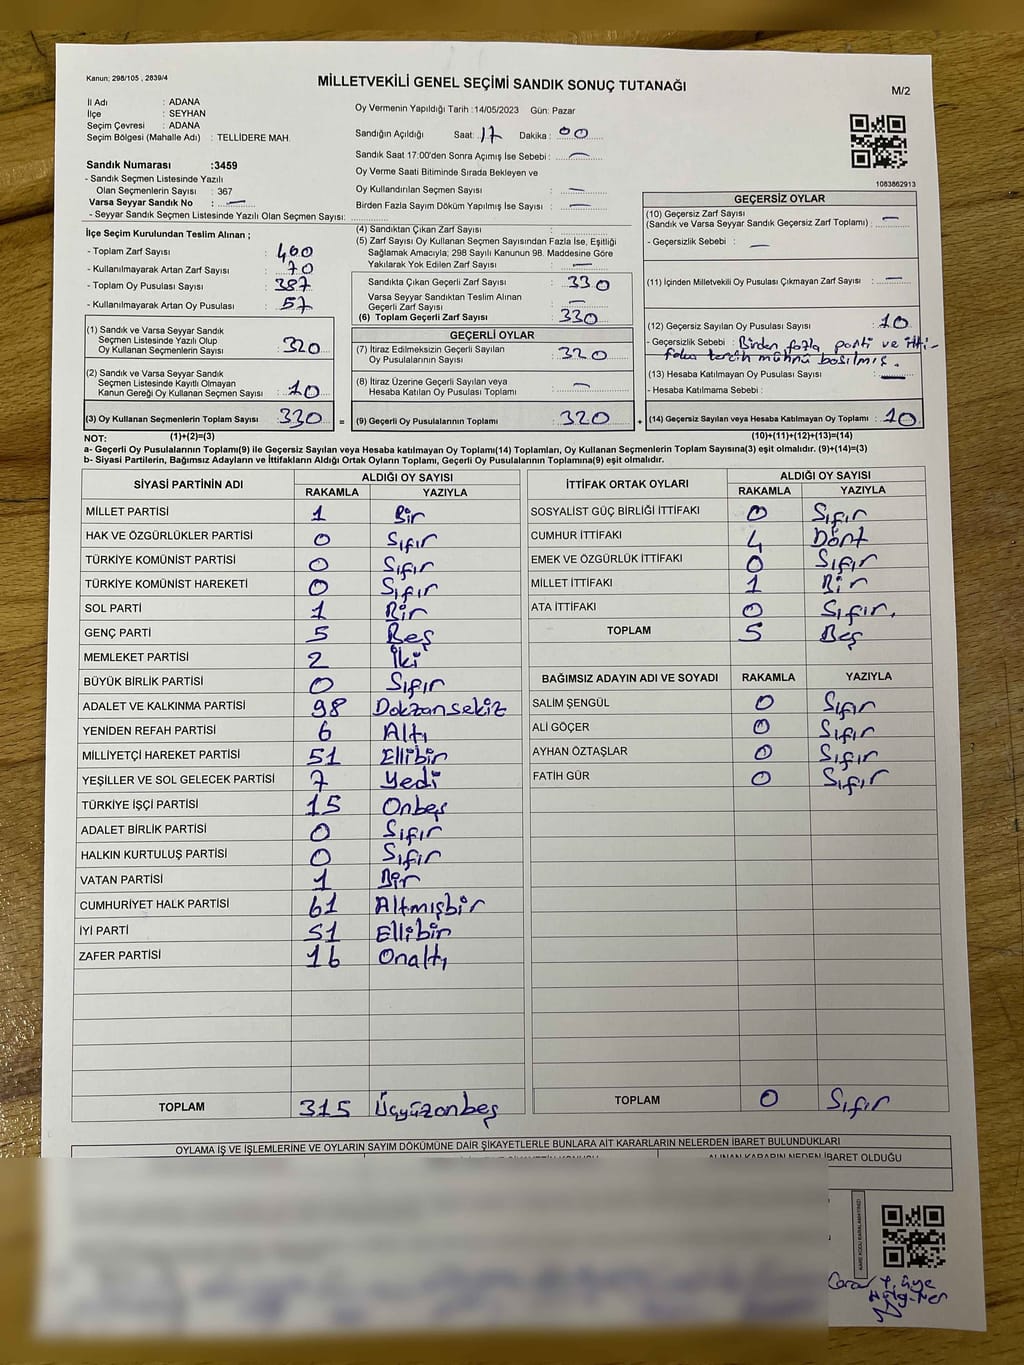 Kanun; 298/105 , 2839/4
MİLLETVEKİLİ GENEL SEÇİMİ SANDIK SONUÇ TUTANAĞI
M/2
İl Adı : ADANA
İlçe : SEYHAN
Seçim Çevresi : ADANA
Seçim Bölgesi (Mahalle Adı) : TELLİDERE MAH.
Sandık Numarası :3459
- Sandık Seçmen Listesinde Yazılı
Olan Seçmenlerin Sayısı : 367
Varsa Seyyar Sandık No : —
- Seyyar Sandık Seçmen Listesinde Yazılı Olan Seçmen Sayısı:
Oy Vermenin Yapıldığı Tarih :14/05/2023 Gün: Pazar
Sandığın Açıldığı Saat: 17 Dakika: 00
Sandık Saat 17:00'den Sonra Açımış İse Sebebi : —
Oy Verme Saati Bitiminde Sırada Bekleyen ve
Oy Kullandırılan Seçmen Sayısı : —
Birden Fazla Sayım Döküm Yapılmış İse Sayısı : —
1083862913
İlçe Seçim Kurulundan Teslim Alınan ;
- Toplam Zarf Sayısı : 400
- Kullanılmayarak Artan Zarf Sayısı : 70
- Toplam Oy Pusulası Sayısı : 387
- Kullanılmayarak Artan Oy Pusulası : 57
(1) Sandık ve Varsa Seyyar Sandık
Seçmen Listesinde Yazılı Olup
Oy Kullanan Seçmenlerin Sayısı : 320
(2) Sandık ve Varsa Seyyar Sandık
Seçmen Listesinde Kayıtlı Olmayan
Kanun Gereği Oy Kullanan Seçmen Sayısı : 10
(3) Oy Kullanan Seçmenlerin Toplam Sayısı : 330 =
(4) Sandıktan Çıkan Zarf Sayısı :
(5) Zarf Sayısı Oy Kullanan Seçmen Sayısından Fazla İse, Eşitliği
Sağlamak Amacıyla; 298 Sayılı Kanunun 98. Maddesine Göre
Yakılarak Yok Edilen Zarf Sayısı : —
Sandıkta Çıkan Geçerli Zarf Sayısı : 330
Varsa Seyyar Sandıktan Teslim Alınan
Geçerli Zarf Sayısı : —
(6) Toplam Geçerli Zarf Sayısı : 330
GEÇERLİ OYLAR
(7) İtiraz Edilmeksizin Geçerli Sayılan
Oy Pusulalarının Sayısı : 320
(8) İtiraz Üzerine Geçerli Sayılan veya
Hesaba Katılan Oy Pusulası Toplamı : —
(9) Geçerli Oy Pusulalarının Toplamı : 320 +
GEÇERSİZ OYLAR
(10) Geçersiz Zarf Sayısı
(Sandık ve Varsa Seyyar Sandık Geçersiz Zarf Toplamı) : —
- Geçersizlik Sebebi : —
(11) İçinden Milletvekili Oy Pusulası Çıkmayan Zarf Sayısı : —
(12) Geçersiz Sayılan Oy Pusulası Sayısı : 10
- Geçersizlik Sebebi : Birden fazla parti ve itti-
faka tercih mührü basılmış.
(13) Hesaba Katılmayan Oy Pusulası Sayısı : —
- Hesaba Katılmama Sebebi :
(14) Geçersiz Sayılan veya Hesaba Katılmayan Oy Toplamı : 10
NOT: (1)+(2)=(3) (10)+(11)+(12)+(13)=(14)
a- Geçerli Oy Pusulalarının Toplamı(9) ile Geçersiz Sayılan veya Hesaba katılmayan Oy Toplamı(14) Toplamları, Oy Kullanan Seçmenlerin Toplam Sayısına(3) eşit olmalıdır. (9)+(14)=(3)
b- Siyasi Partilerin, Bağımsız Adayların ve İttifakların Aldığı Ortak Oyların Toplamı, Geçerli Oy Pusulalarının Toplamına(9) eşit olmalıdır.
SİYASİ PARTİNİN ADI ALDIĞI OY SAYISI
RAKAMLA YAZIYLA
MİLLET PARTİSİ 1 Bir
HAK VE ÖZGÜRLÜKLER PARTİSİ 0 Sıfır
TÜRKİYE KOMÜNİST PARTİSİ 0 Sıfır
TÜRKİYE KOMÜNİST HAREKETİ 0 Sıfır
SOL PARTİ 1 Bir
GENÇ PARTİ 5 Beş
MEMLEKET PARTİSİ 2 İki
BÜYÜK BİRLİK PARTİSİ 0 Sıfır
ADALET VE KALKINMA PARTİSİ 98 Dokzansekiz
YENİDEN REFAH PARTİSİ 6 Altı
MİLLİYETÇİ HAREKET PARTİSİ 51 Ellibir
YEŞİLLER VE SOL GELECEK PARTİSİ 7 Yedi
TÜRKİYE İŞÇİ PARTİSİ 15 Onbeş
ADALET BİRLİK PARTİSİ 0 Sıfır
HALKIN KURTULUŞ PARTİSİ 0 Sıfır
VATAN PARTİSİ 1 Bir
CUMHURİYET HALK PARTİSİ 61 Altmışbir
İYİ PARTİ 51 Ellibir
ZAFER PARTİSİ 16 Onaltı
TOPLAM 315 Üçyüzonbeş
İTTİFAK ORTAK OYLARI ALDIĞI OY SAYISI
RAKAMLA YAZIYLA
SOSYALİST GÜÇ BİRLİĞİ İTTİFAKI 0 Sıfır
CUMHUR İTTİFAKI 4 Dört
EMEK VE ÖZGÜRLÜK İTTİFAKI 0 Sıfır
MİLLET İTTİFAKI 1 Bir
ATA İTTİFAKI 0 Sıfır.
TOPLAM 5 Beş
BAĞIMSIZ ADAYIN ADI VE SOYADI RAKAMLA YAZIYLA
SALİM ŞENGÜL 0 Sıfır
ALİ GÖÇER 0 Sıfır
AYHAN ÖZTAŞLAR 0 Sıfır
FATİH GÜR 0 Sıfır
TOPLAM 0 Sıfır
OYLAMA İŞ VE İŞLEMLERİNE VE OYLARIN SAYIM DÖKÜMÜNE DAİR ŞİKAYETLERLE BUNLARA AİT KARARLARIN NELERDEN İBARET BULUNDUKLARI
ALINAN KARARIN NEDEN İBARET OLDUĞU